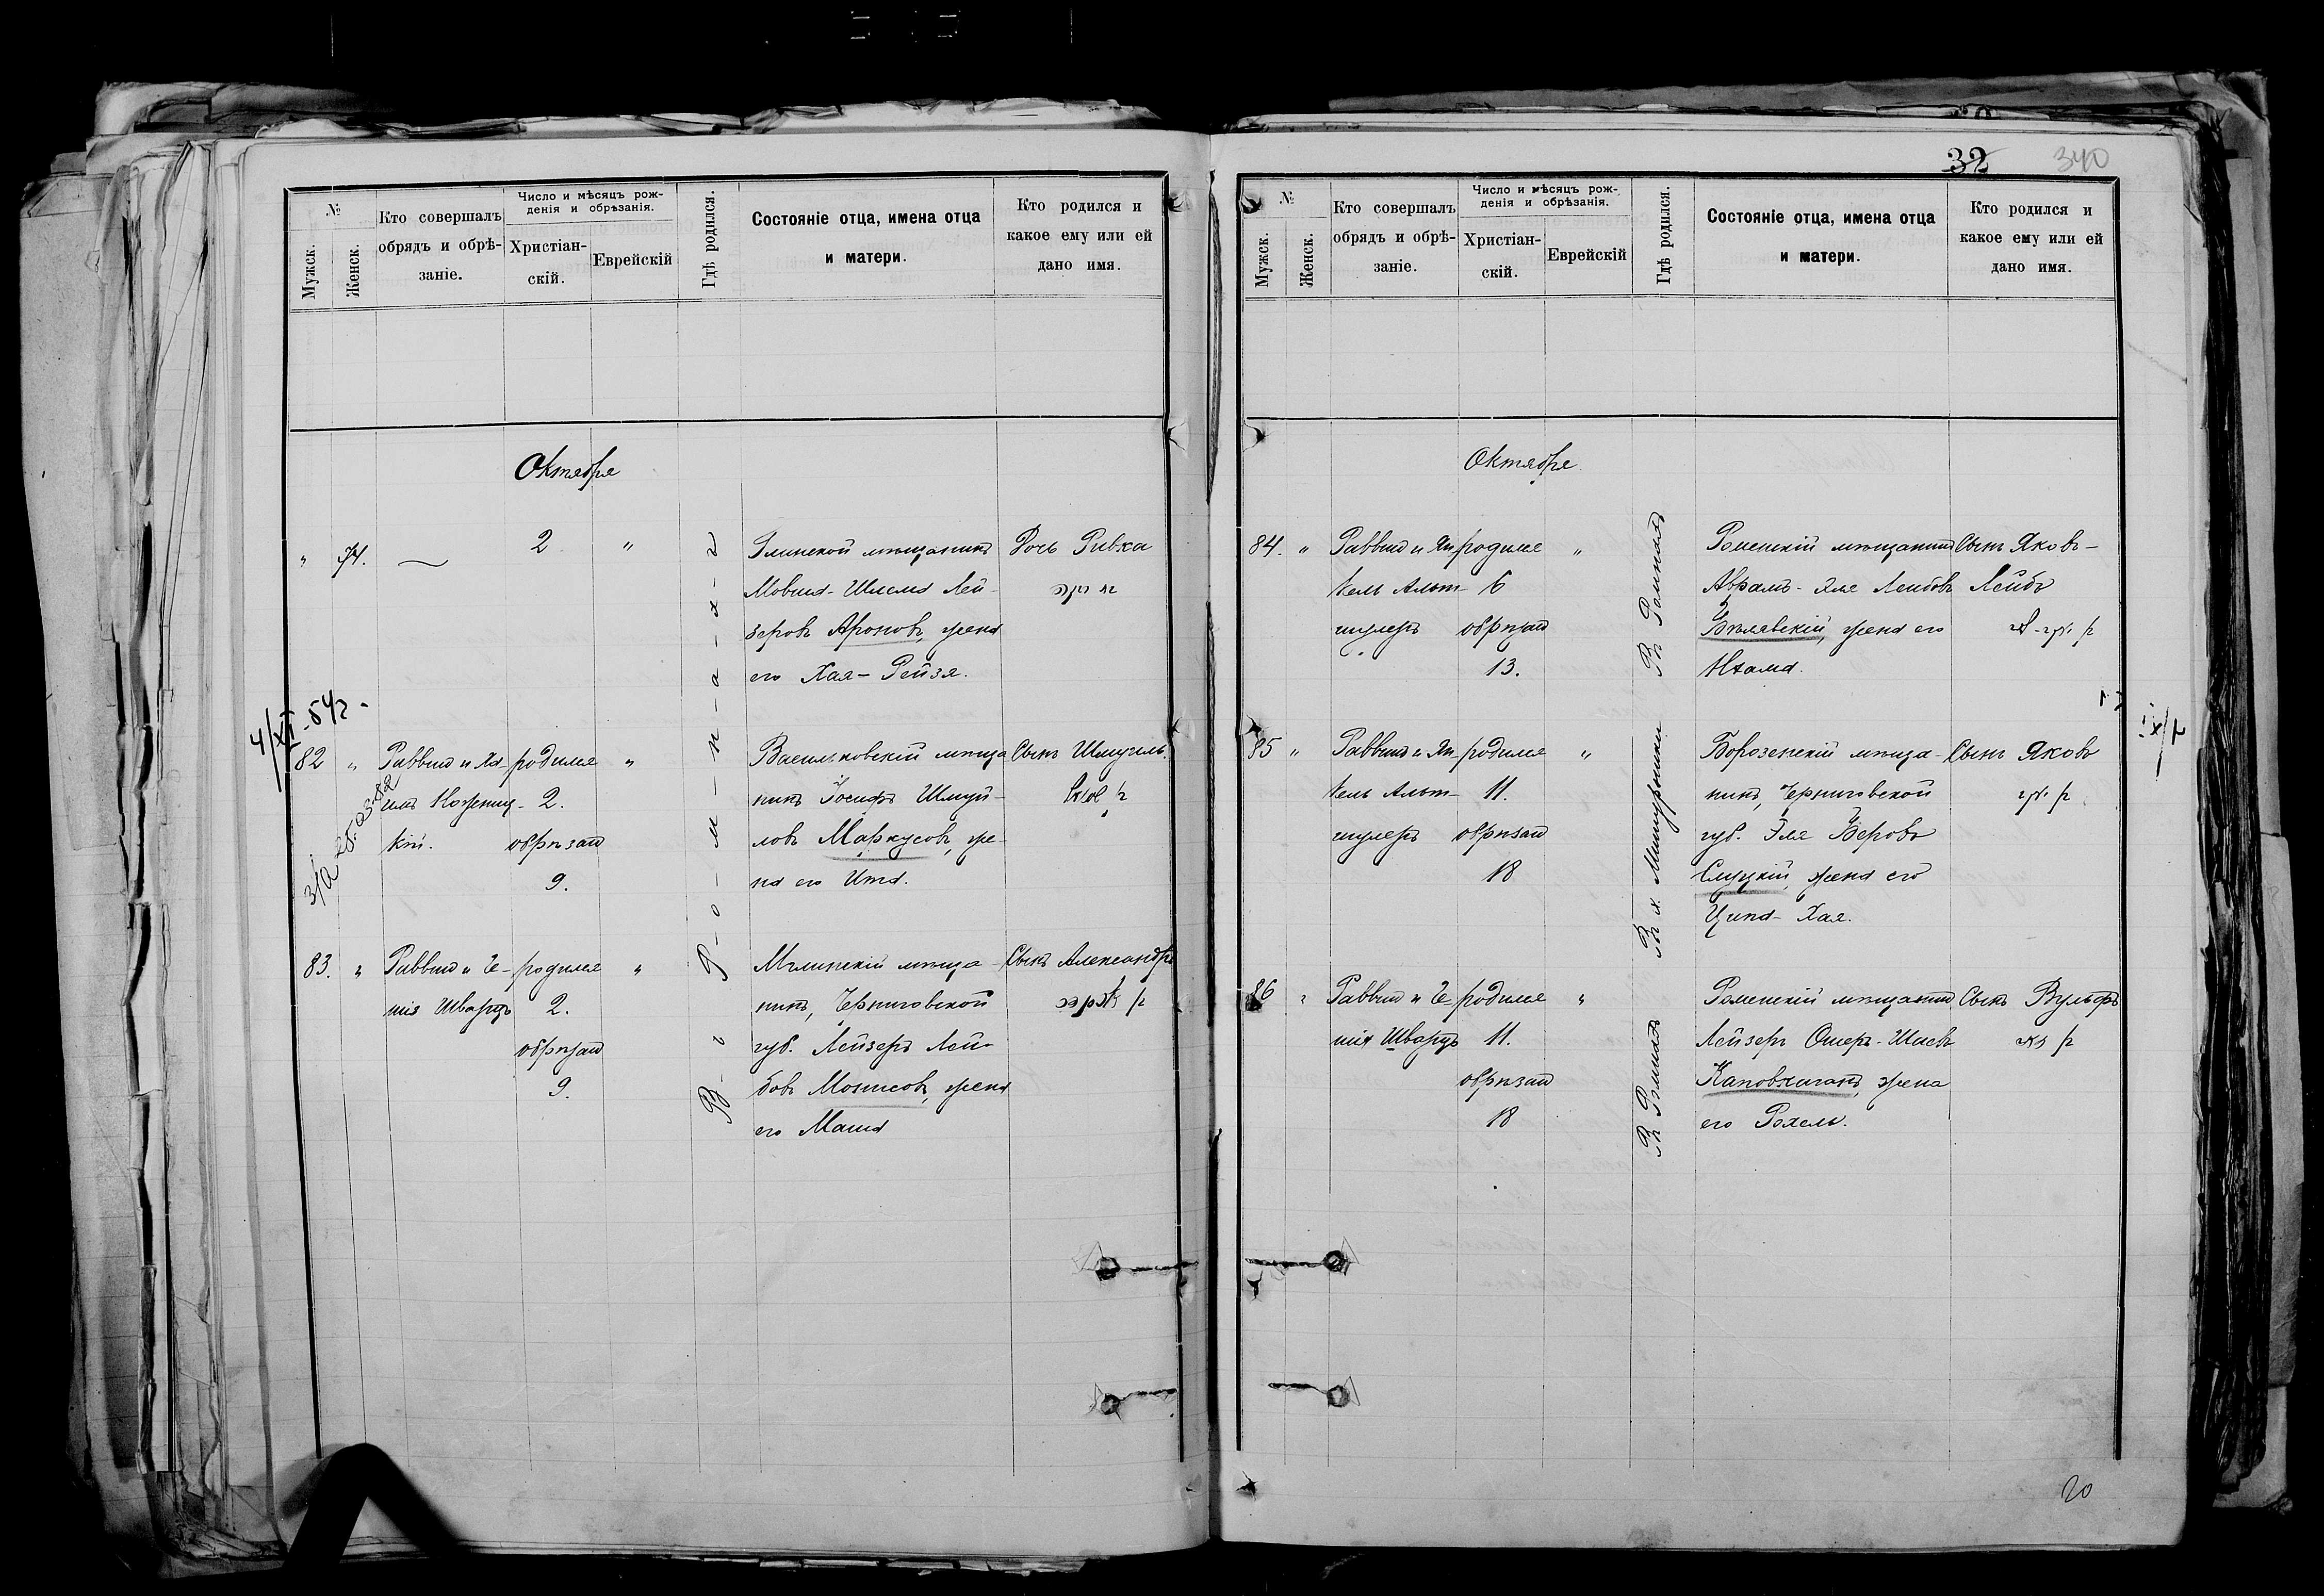 №
Мужск.
Женск.
Кто совершалъ
обрядъ и обрѣ-
заніе.
Число и мѣсяцъ рож-
денія и обрѣзанія.
Христіан-
скій.
Еврейскій
Гдѣ родился.
Состояніе отца, имена отца
и матери.
Кто родился и
какое ему или ей
дано имя.
Октября
" 74. — 2 "
Глинской мѣщанинъ
Мовша-Шлема Лей-
зеровъ Ароновъ, жена
его Хая-Рейзя.
Дочь Ривка
4/XI-54г.
82 "
Раввинъ и
кій.
родился
2.
обрѣзанъ
9.
"
Васильковскій мѣща
нинъ Іосифъ Шмуй-
ловъ Маркусовъ, же-
на его Ита.
Сынъ Шмуель.
83. "
Раввинъ и Ге-
нія Шварцъ
родился
2.
обрѣзанъ
9.
"
Мглинскій мѣща
нинъ, Черниговской
губ. Лейзеръ Лей-
бовъ Монисовъ, жена
его Маша
Сынъ Александръ
В-г-о-р-о-м-н-а-х-ъ
32
340
№
Мужск.
Женск.
Кто совершалъ
обрядъ и обрѣ-
заніе.
Число и мѣсяцъ рож-
денія и обрѣзанія.
Христіан-
скій.
Еврейскій
Гдѣ родился.
Состояніе отца, имена отца
и матери.
Кто родился и
какое ему или ей
дано имя.
Октября
84. "
Раввинъ и Ян
кель Альт-
шулеръ
родился
6
обрѣзанъ
13.
"
Въ Ромнахъ
Роменскій мѣщанинъ
Абрамъ-Эля Лейбовъ
Бѣлявскій, жена его
Нхама.
Сынъ Яковъ-
Лейбъ
85 "
Раввинъ и Ян
кель Альт-
шулеръ
родился
11.
обрѣзанъ
18
"
Борозенскій мѣща-
нинъ, Черниговской
губ. Эля Беровъ
Слуцкій, жена его
Ципа-Хая.
Сынъ Яковъ
86 "
Раввинъ и Ге-
нія Шварцъ
родился
11.
обрѣзанъ
18
"
Въ Ромнахъ
Роменскій мѣщанинъ
Лейзеръ Ошеръ-Шиевъ
жена
его Рохель.
Сынъ Вульфъ
20